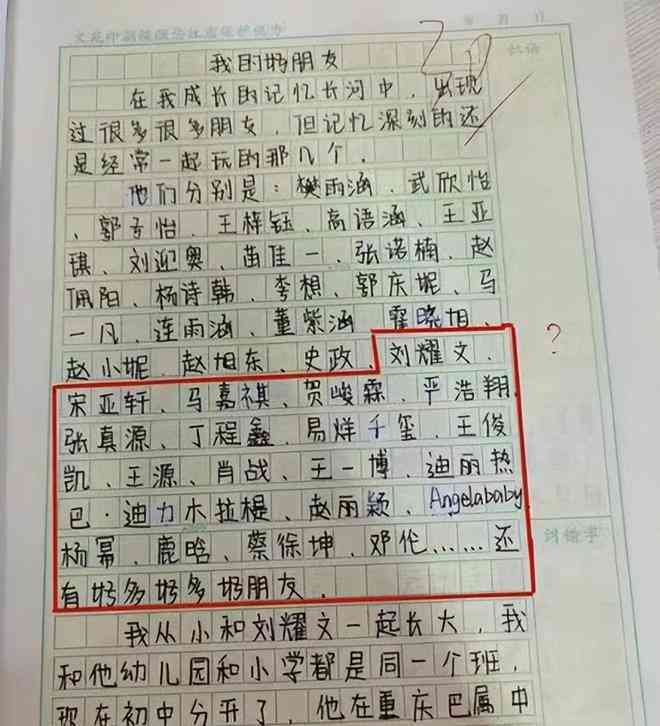 我的好朋友
在我成长的记忆长河中，出现
过很多很多朋友，但记忆深刻的还
是经常一起玩的那几个，
他们分别是：樊雨涵、武欣怡
、郭子怡、王梓钰、高语涵、王亚
琪、刘迎奥、苗佳一、张诺楠、赵
佩阳、杨诗韩、李想、郭庆妮、马
一凡、连雨涵、董紫涵、霍晓旭、
赵小妮、赵旭东、史政、刘耀文、
?
宋亚轩、马嘉祺、贺峻霖、严浩翔、
张真源、丁程鑫、易烊千玺、王俊
凯、王源、肖战、王一博、迪丽热
巴·迪力木拉提、赵丽颖、Angelababy
杨幂、鹿晗、蔡徐坤、邓伦……还
有好多好多好朋友．
我从小和刘耀文一起长大，我
和他幼儿园和小学都是同一个班，
现在初中分开了，他在重庆巴属中